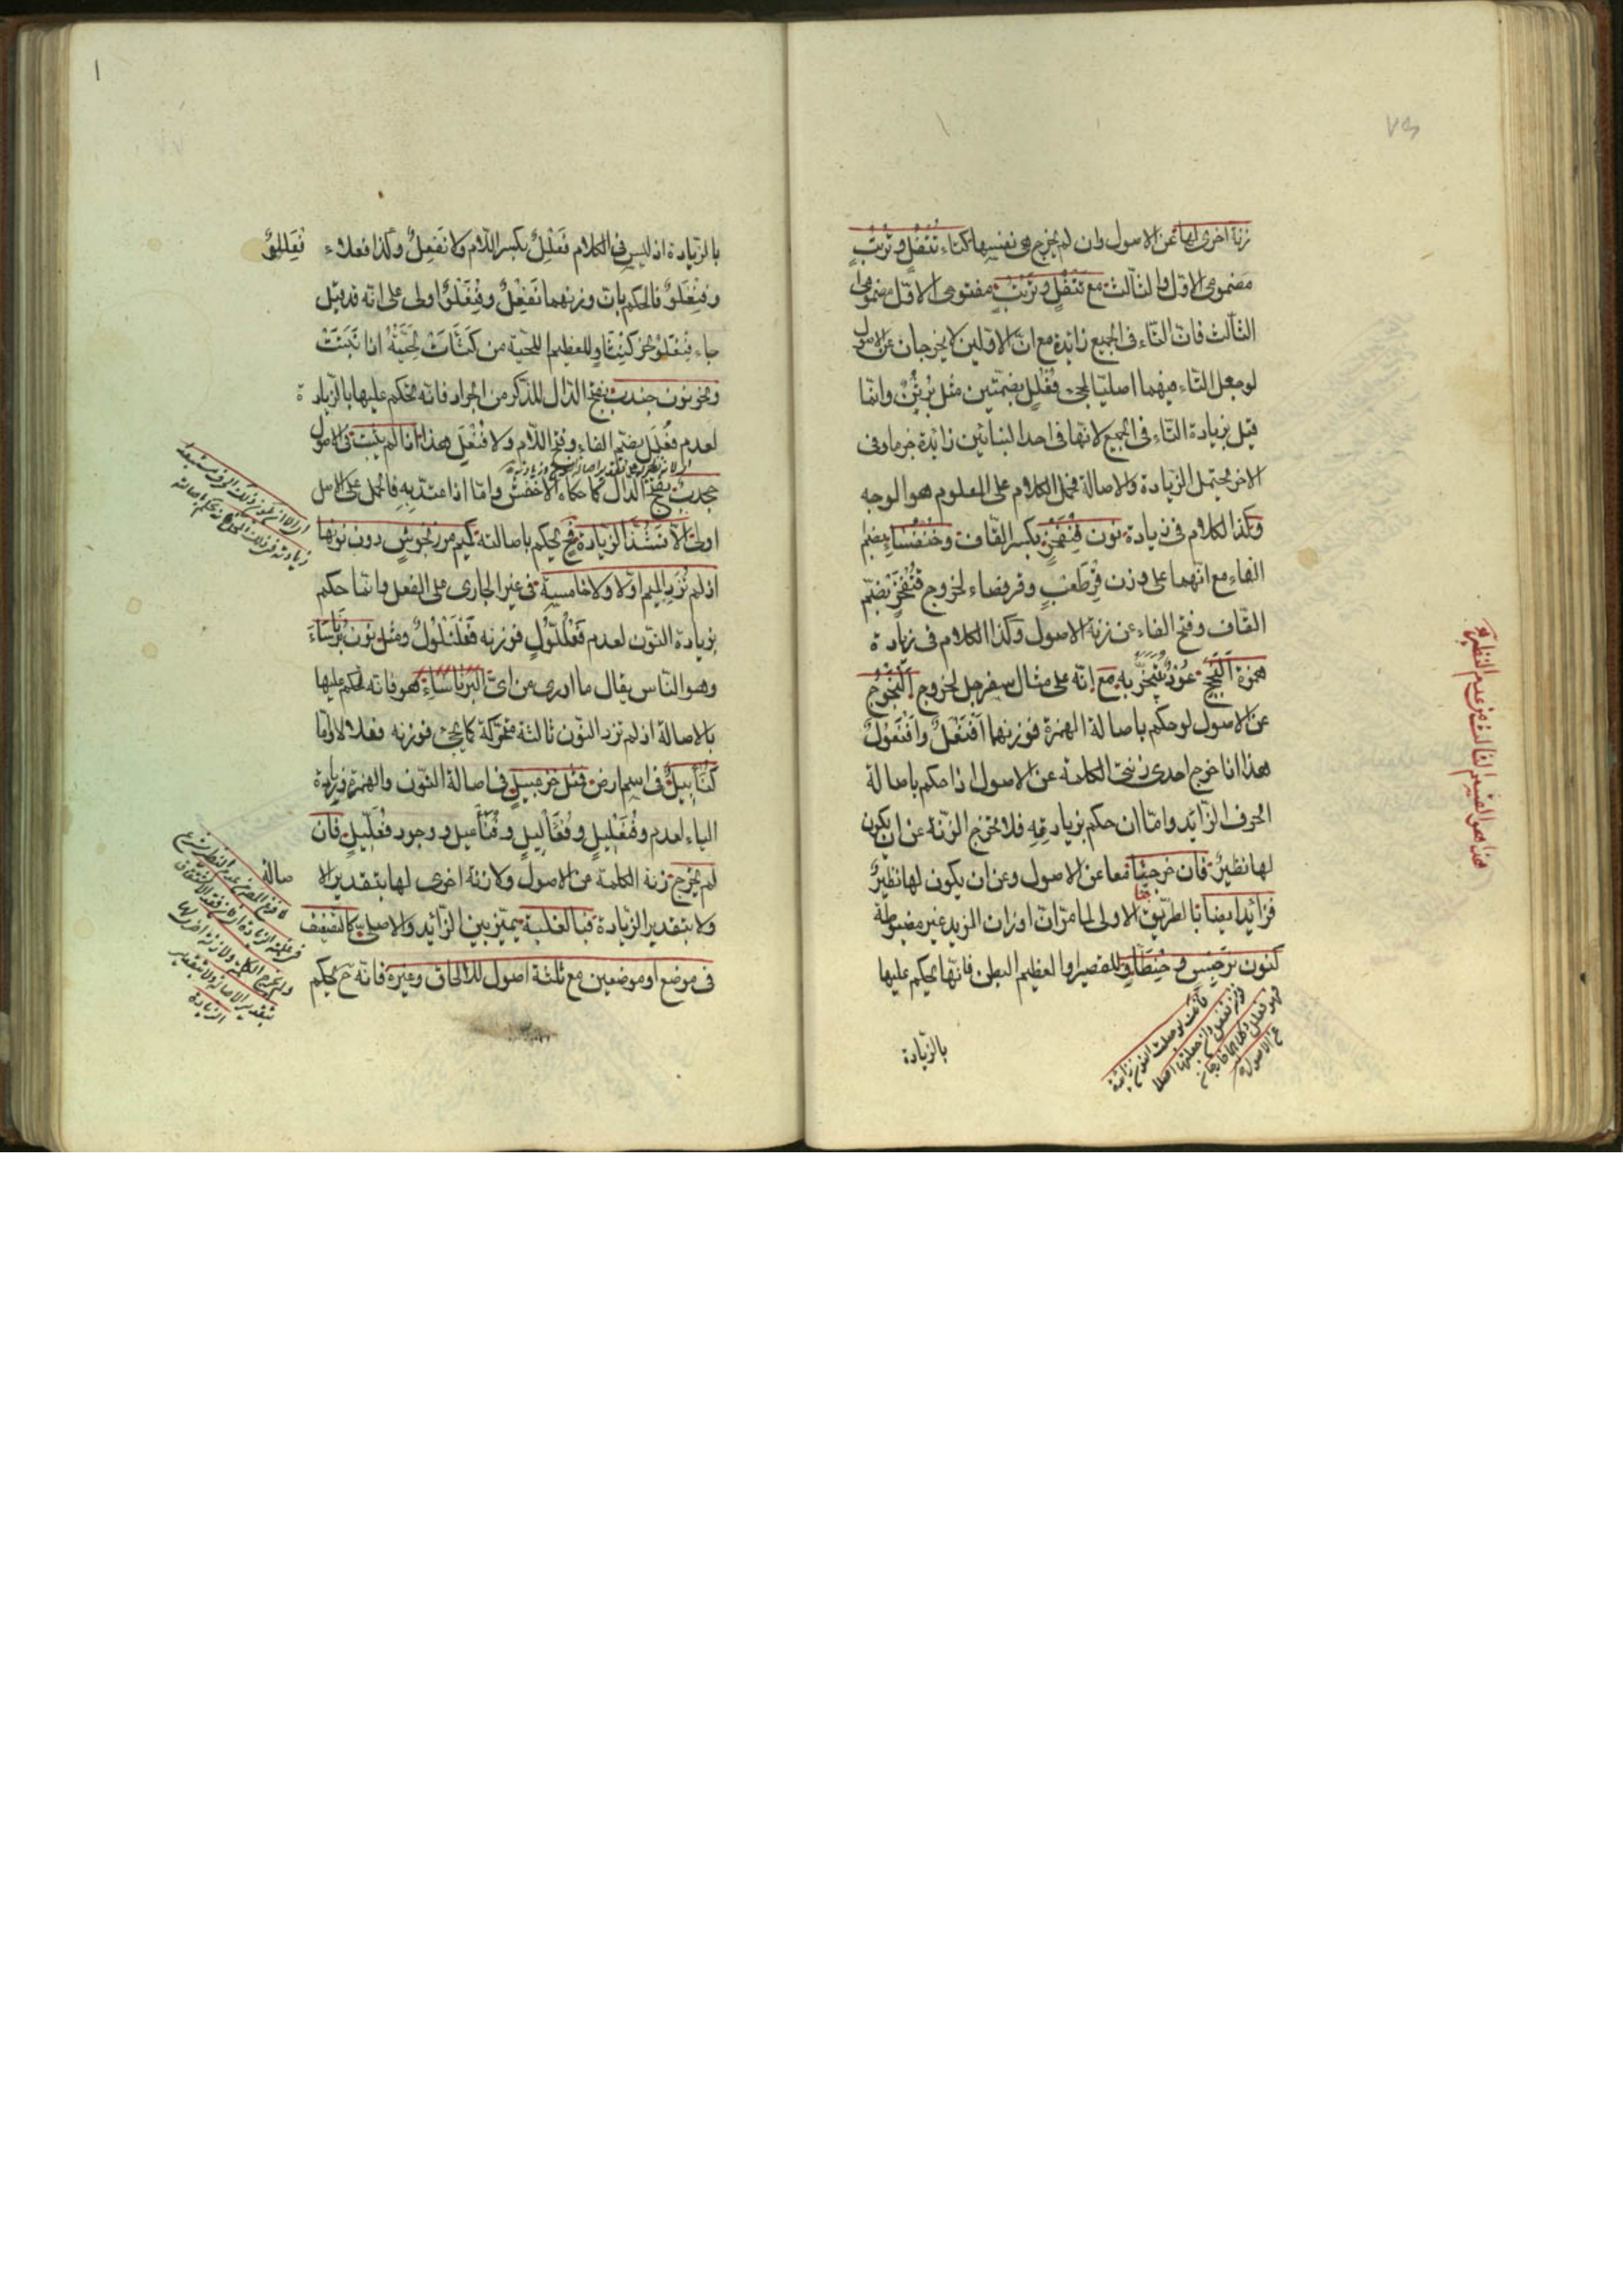 زنة اخرى لها عن الاصول وان لم يخرج هى نفسها كتاء تتفل و ترتب
مضمومى الاول والثالث مع تتفل و ترتب مفتوحى الاول مضمومى
الثالث فان التاء فى الجميع زائدة مع ان الاولين لا يخرجان عن الاصول
لو جعل التاء فيهما اصليا لمجئ فُعْلُل بضمتين مثل بُرثُن وانما
قيل بزيادة التاء فى الجميع لانها فى احد البنائين زائدة جزما وفى
الاخر يحتمل الزيادة والاصالة فحمل الكلام على المعلوم هو الوجه
وكذا الكلام فى زيادة نون قِنْفَخْرٍ بكسر القاف وخُنْفُسَاء بضم
الفاء مع انهما على وزن قِرْطَعْبٍ وقرفصاء لخروج قُنْفَخْرٍ بضم
القاف وفتح الفاء عن زنة الاصول وكذا الكلام فى زيادة
همزة اَلَنْجَج عُوْدٌ يُتَبَخَّرُ بِهِ مع انه على مثال سفرجل لخروج اَلَنْجُوْج
عن الاصول لو حكم باصالة الهمزة فوزنهما اَفَنْعَلٌ واَفَنْعُوْلٌ
هذا اذا خرج احدى زنتى الكلمة عن الاصول اذا حكم باصالة
الحرف الزائد واما ان حكم بزيادته فلا تخرج الزنة عن ان يكون
لها نظير فان خرجتا معا عن الاصول وعن ان يكون لها نظير
فزائد ايضا بالطريق الاولى لما مر ان اوزان المزيد غير مضبوطة
كنون نرجس و حِنْطَأْوٍ للقصير او العظيم البطن فانها يحكم عليها
بالزيادة
هذا هو القسم الثالث من عدم النظير
بالزيادة اذ ليس فى الكلام فَعْلِلٌ بكسر اللام ولا نَفْعِلٌ وكذا فعلاء
وفِنْعَلْوٌ فالحكم بان وزنهما نَفْعِلٌ وفِنْعَلْوٌ اولى على انه قد قيل
جاء فِنْعَلْوٌ نحو كِنْثَأْوٍ للعظيم اللحية من كَثَّأَتْ لِحْيَتُهُ اذا نَبَتَتْ
ونحو نون جندب بفتح الدال للذكر من الجراد فانه يحكم عليها بالزيادة
لعدم فُعْلَل بضم الفاء وفتح اللام ولا فُنْعَل وهذا اذا لم يثبت فى الاصول
جخدب بفتح الدال كما حكاه الاخفش واما اذا اعتد به فالحمل على الاصل
اولى الا ان تَشُذَّ الزيادة فح يحكم باصالته كميم مرزنجوش دون نونها
اذ لم تُزَدِ الميم اولا ولا خامسة فى غير الجارى على الفعل وانما حكم
بزيادة النون لعدم فَعْلَلُّوْلٍ فوزنه فَعْلَنْلُوْلٌ ومثل نون بَرْنَاسَاءَ
وهو الناس يقال ما ادرى من اى البَرْنَاسَاءِ هو فانه يحكم عليها
بالاصالة اذ لم تزد النون ثالثة متحركة كما يجئ فوزنه فعلالاء واما
كُنَأْبِيلٌ فى اسم ارض فمثل خزعبيل فى اصالة النون والهمزة وزيادة
لم يخرج زنة الكلمة عن الاصول ولا زنة اخرى لها بتقدير الا
صالة
ولا بتقدير الزيادة فبا لغلبة يتميز بين الزائد والاصلى كالتضعيف
فى موضع او موضعين مع ثلثة اصول للالحاق وغيره فانه ح يحكم